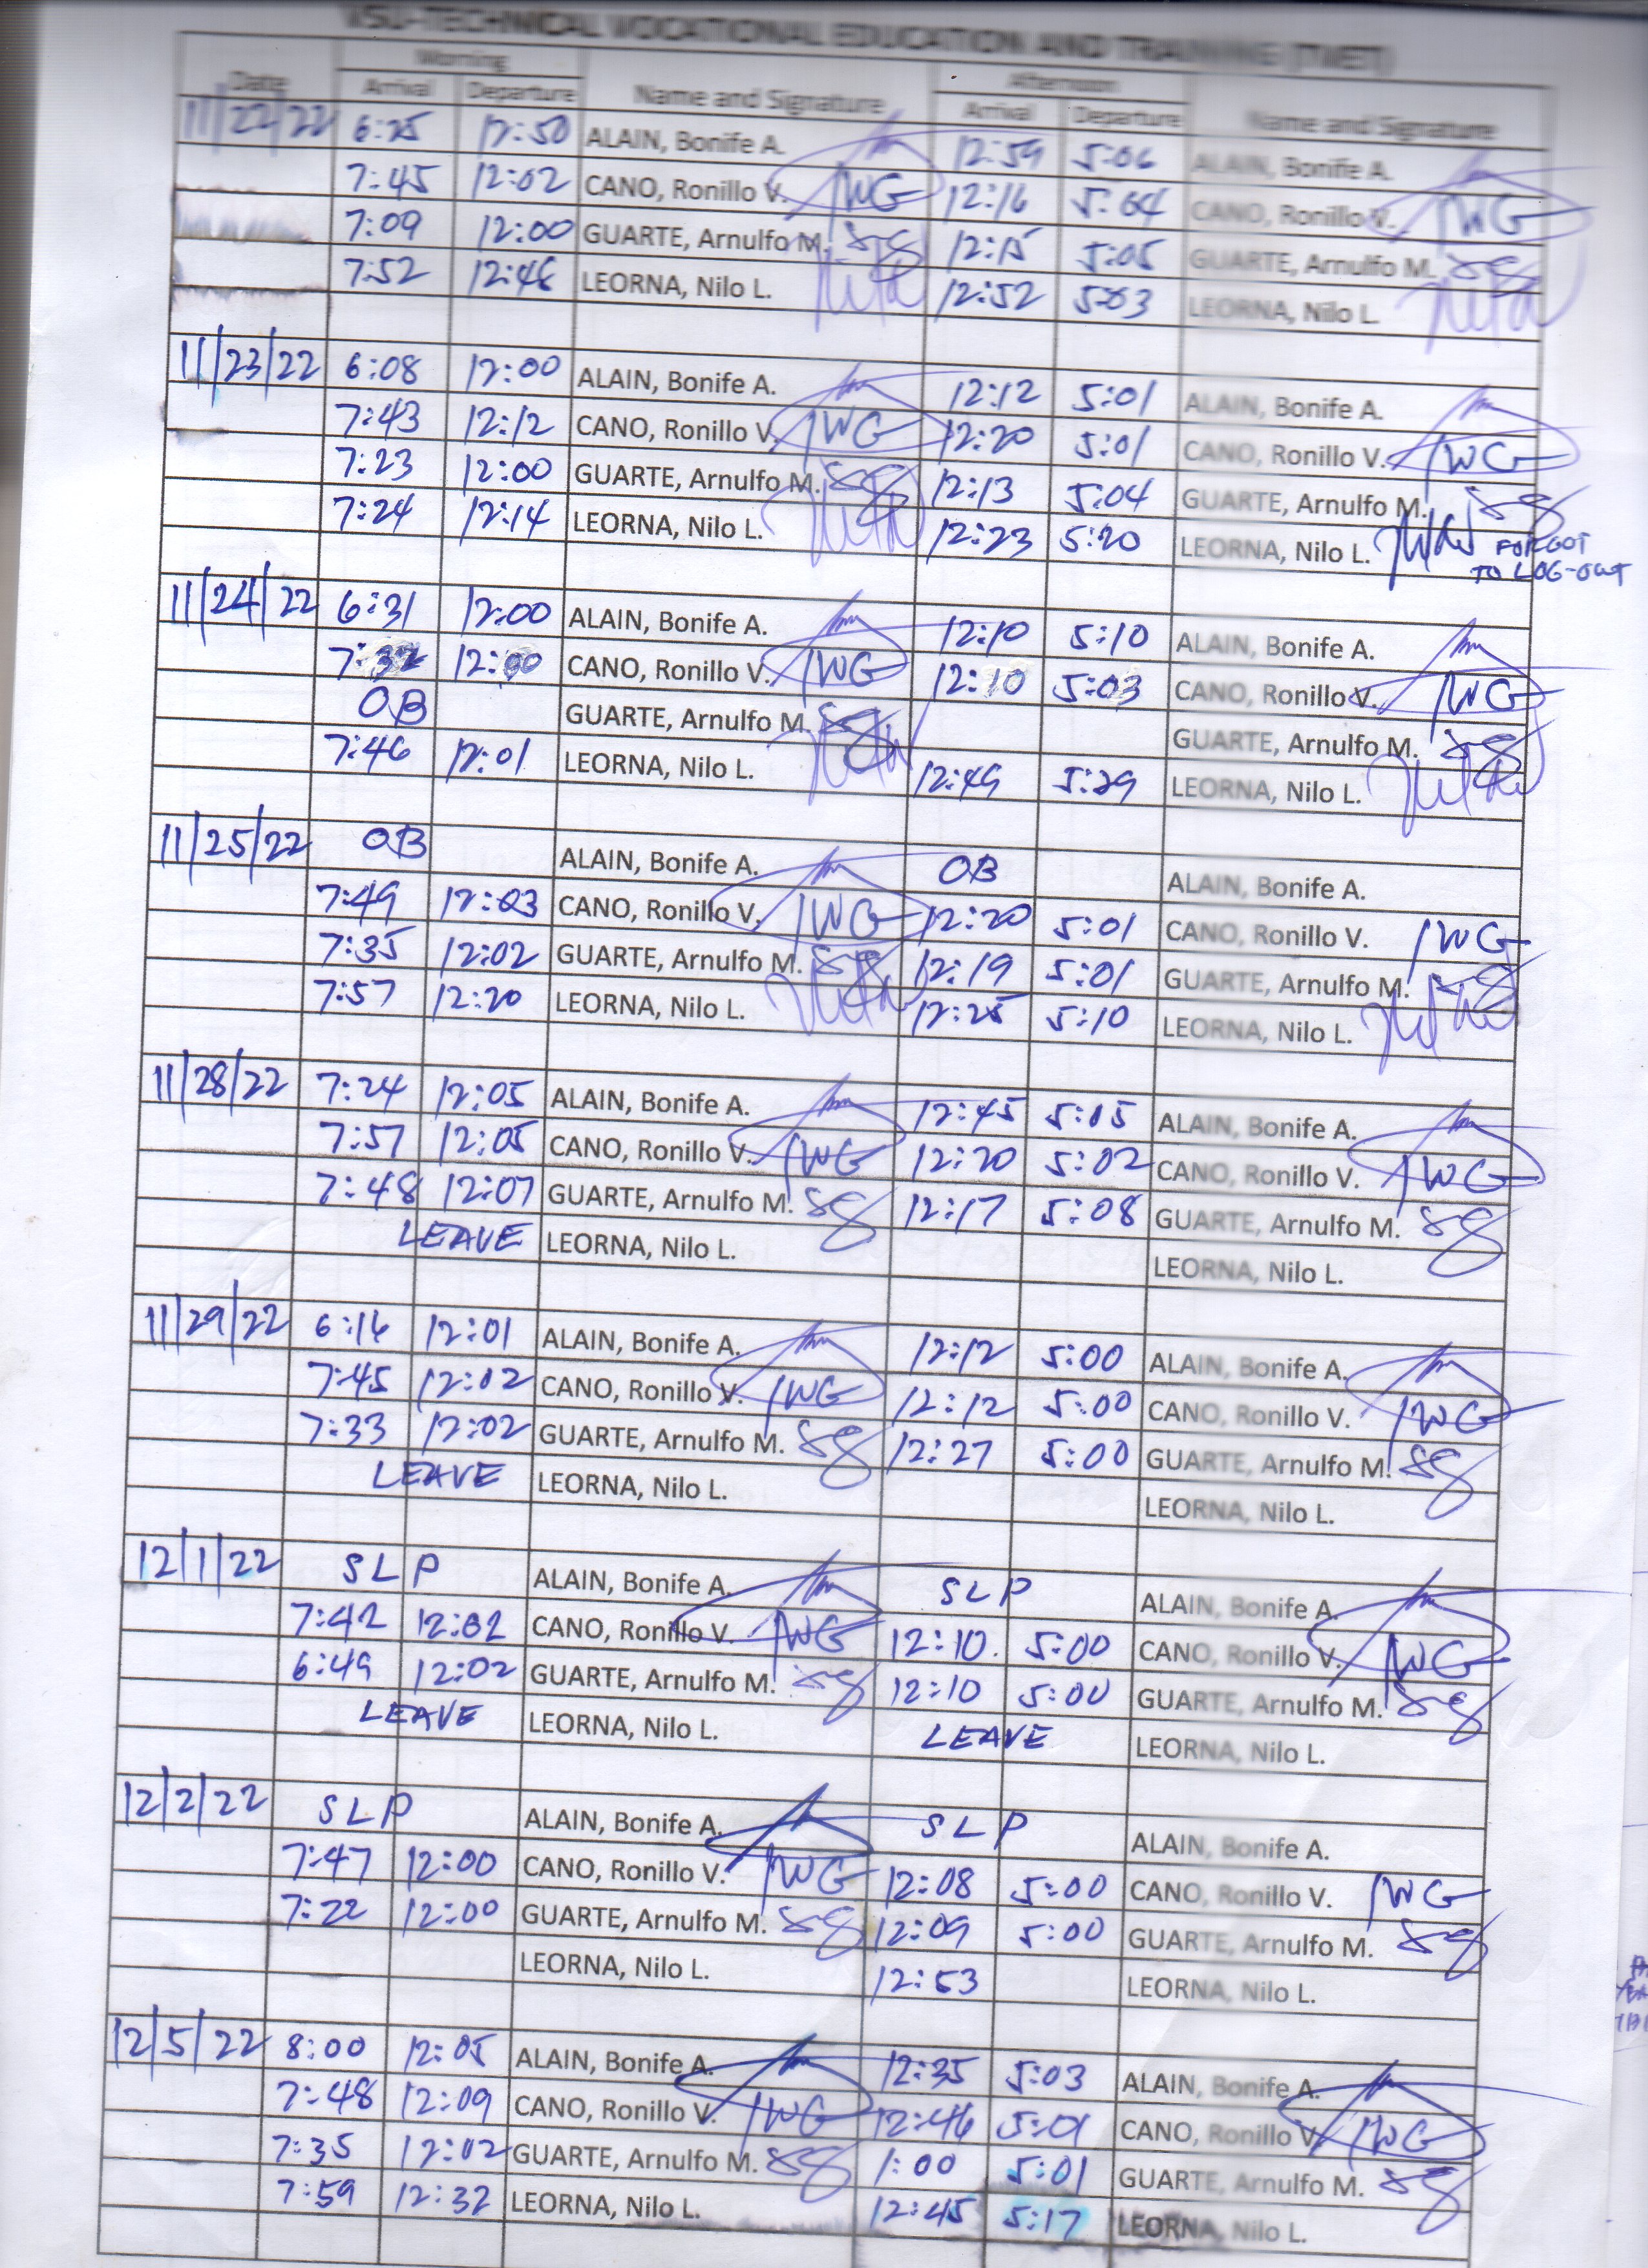 VSU-TECHNICAL VOCATIONAL EDUCATION AND TRAINING (TVET)
Morning Afternoon
Date Arrival Departure Name and Signature Arrival Departure Name and Signature
11/22/22 6:25 12:50 ALAIN, Bonife A. 12:59 5:06 ALAIN, Bonife A.
7:45 12:02 CANO, Ronillo V. 12:16 5:04 CANO, Ronillo V.
7:09 12:00 GUARTE, Arnulfo M. 12:15 5:05 GUARTE, Arnulfo M.
7:52 12:46 LEORNA, Nilo L. 12:52 5:03 LEORNA, Nilo L.
11/23/22 6:08 12:00 ALAIN, Bonife A. 12:12 5:01 ALAIN, Bonife A.
7:43 12:12 CANO, Ronillo V. 12:20 5:01 CANO, Ronillo V.
7:23 12:00 GUARTE, Arnulfo M. 12:13 5:04 GUARTE, Arnulfo M.
7:24 12:14 LEORNA, Nilo L. 12:23 5:20 LEORNA, Nilo L. FORGOT
TO LOG-OUT
11/24/22 6:31 12:00 ALAIN, Bonife A. 12:10 5:10 ALAIN, Bonife A.
7:32 12:00 CANO, Ronillo V. 12:10 5:03 CANO, Ronillo V.
OB GUARTE, Arnulfo M. GUARTE, Arnulfo M.
7:46 12:01 LEORNA, Nilo L. 12:49 5:29 LEORNA, Nilo L.
11/25/22 OB ALAIN, Bonife A. OB ALAIN, Bonife A.
7:49 12:03 CANO, Ronillo V. 12:20 5:01 CANO, Ronillo V.
7:35 12:02 GUARTE, Arnulfo M. 12:19 5:01 GUARTE, Arnulfo M.
7:57 12:20 LEORNA, Nilo L. 12:25 5:10 LEORNA, Nilo L.
11/28/22 7:24 12:05 ALAIN, Bonife A. 12:45 5:05 ALAIN, Bonife A.
7:57 12:05 CANO, Ronillo V. 12:20 5:02 CANO, Ronillo V.
7:48 12:07 GUARTE, Arnulfo M. 12:17 5:08 GUARTE, Arnulfo M.
LEAVE LEORNA, Nilo L. LEORNA, Nilo L.
11/29/22 6:16 12:01 ALAIN, Bonife A. 12:12 5:00 ALAIN, Bonife A.
7:45 12:02 CANO, Ronillo V. 12:12 5:00 CANO, Ronillo V.
7:33 12:02 GUARTE, Arnulfo M. 12:27 5:00 GUARTE, Arnulfo M.
LEAVE LEORNA, Nilo L. LEORNA, Nilo L.
12/1/22 SLP ALAIN, Bonife A. SLP ALAIN, Bonife A.
7:42 12:02 CANO, Ronillo V. 12:10 5:00 CANO, Ronillo V.
6:49 12:02 GUARTE, Arnulfo M. 12:10 5:00 GUARTE, Arnulfo M.
LEAVE LEORNA, Nilo L. LEAVE LEORNA, Nilo L.
12/2/22 SLP ALAIN, Bonife A. SLP ALAIN, Bonife A.
7:47 12:00 CANO, Ronillo V. 12:08 5:00 CANO, Ronillo V.
7:22 12:00 GUARTE, Arnulfo M. 12:09 5:00 GUARTE, Arnulfo M.
LEORNA, Nilo L. 12:53 LEORNA, Nilo L.
12/5/22 8:00 12:05 ALAIN, Bonife A. 12:35 5:03 ALAIN, Bonife A.
7:48 12:09 CANO, Ronillo V. 12:46 5:01 CANO, Ronillo V.
7:35 12:02 GUARTE, Arnulfo M. 1:00 5:01 GUARTE, Arnulfo M.
7:59 12:32 LEORNA, Nilo L. 12:45 5:17 LEORNA, Nilo L.